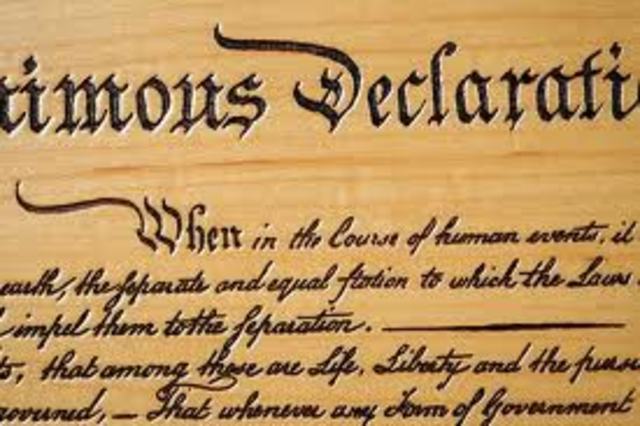 imous Declarati
When in the Course of human events, it
earth, the separate and equal station to which the Laws
impel them to the separation.
that among these are Life, Liberty and the purs
overned, — That whenever any Form of Government